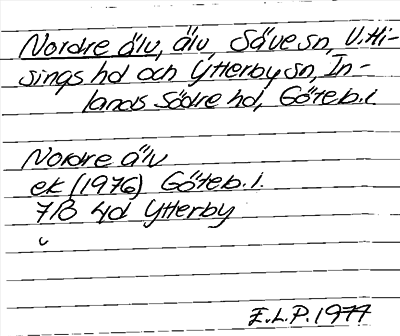 Nordre älv, älv, Säve sn, V. Hi-
sings hd och Ytterby sn, In-
lands Södre hd, Göteb. l.
Nordre älv
ek (1976) Göteb. l.
7/B 4d Ytterby
E.L.P. 1977